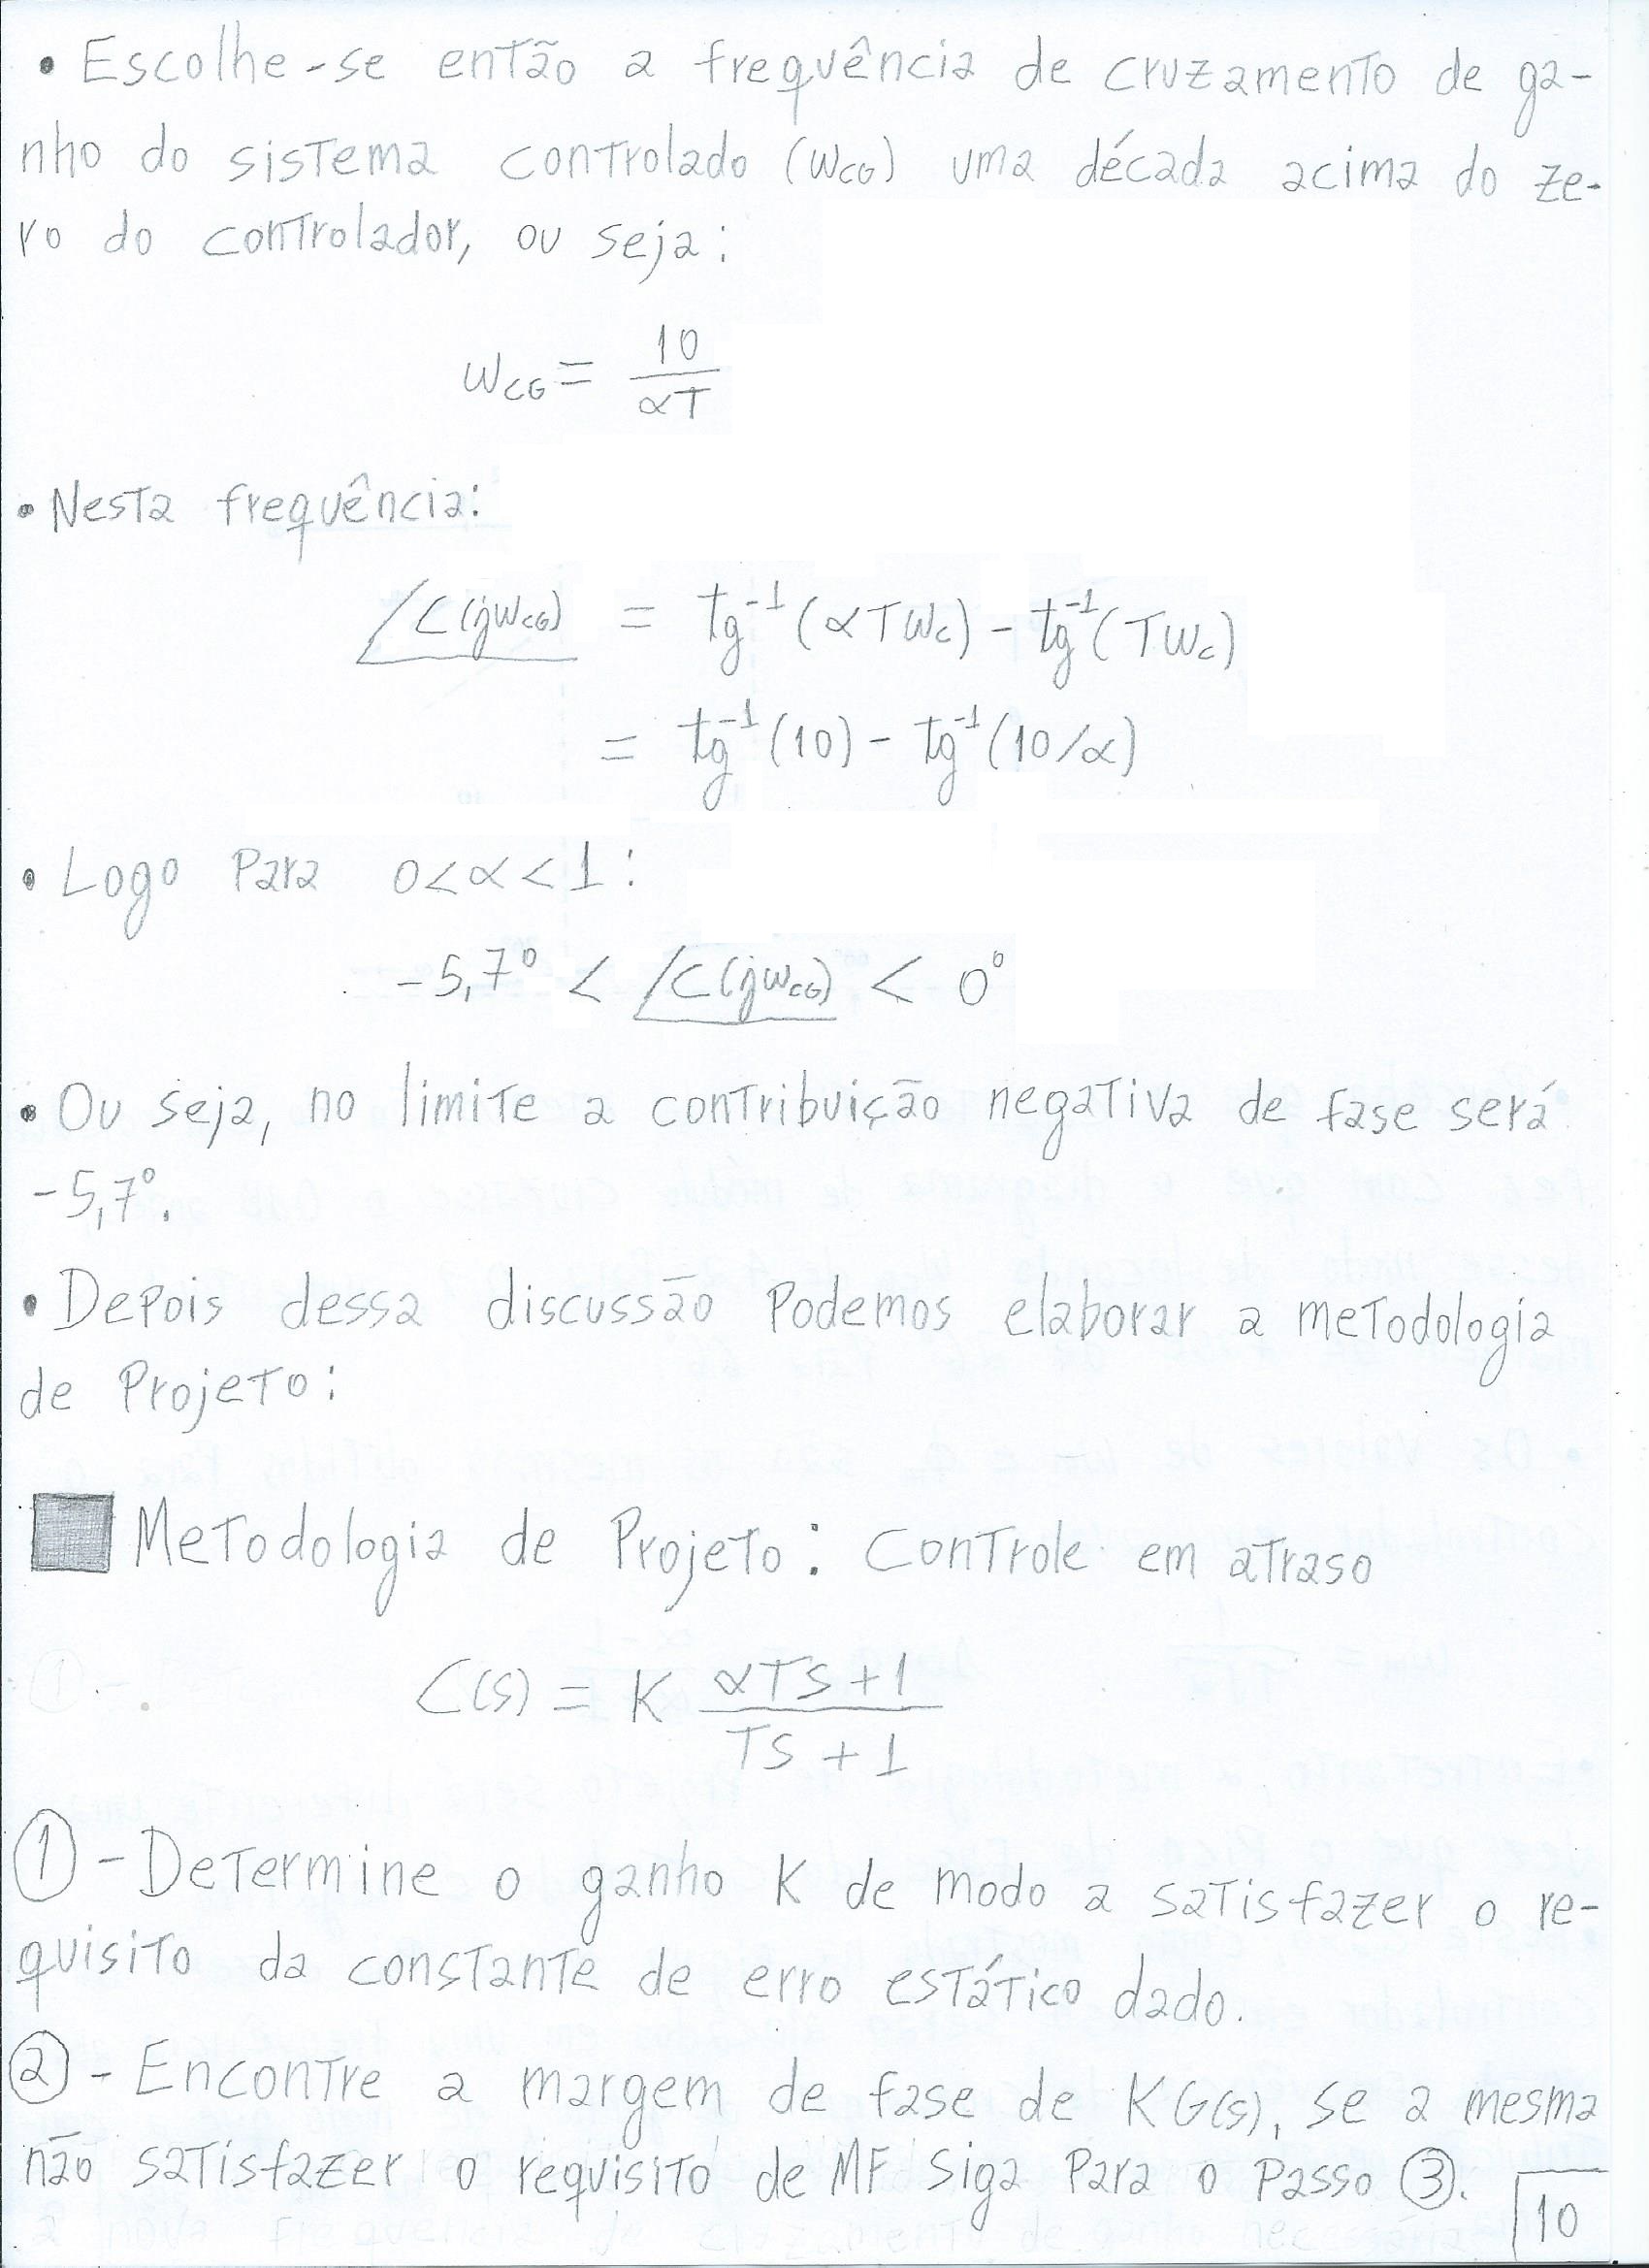 • Escolhe-se então a frequência de cruzamento de ga-
nho do sistema controlado (WCG) uma década acima do ze-
ro do controlador, ou seja:
WCG = 10/αT
• Nesta frequência:
∠C(jWCG) = tg⁻¹(αTWc) - tg⁻¹(TWc)
= tg⁻¹(10) - tg⁻¹(10/α)
• Logo Para 0<α<1:
-5,7° < ∠C(jWCG) < 0°
• Ou seja, no limite a contribuição negativa de fase será
-5,7°.
• Depois dessa discussão Podemos elaborar a metodologia
de Projeto:
Metodologia de Projeto: Controle em atraso
C(s) = K (αTS+1)/(TS+1)
① - Determine o ganho K de modo a satisfazer o re-
quisito da constante de erro estático dado.
② - Encontre a margem de fase de KG(s), se a mesma
não satisfazer o requisito de MF siga Para o Passo ③.
10